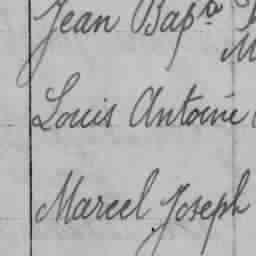 Jean Bapte
Louis Antoine
Marcel Joseph